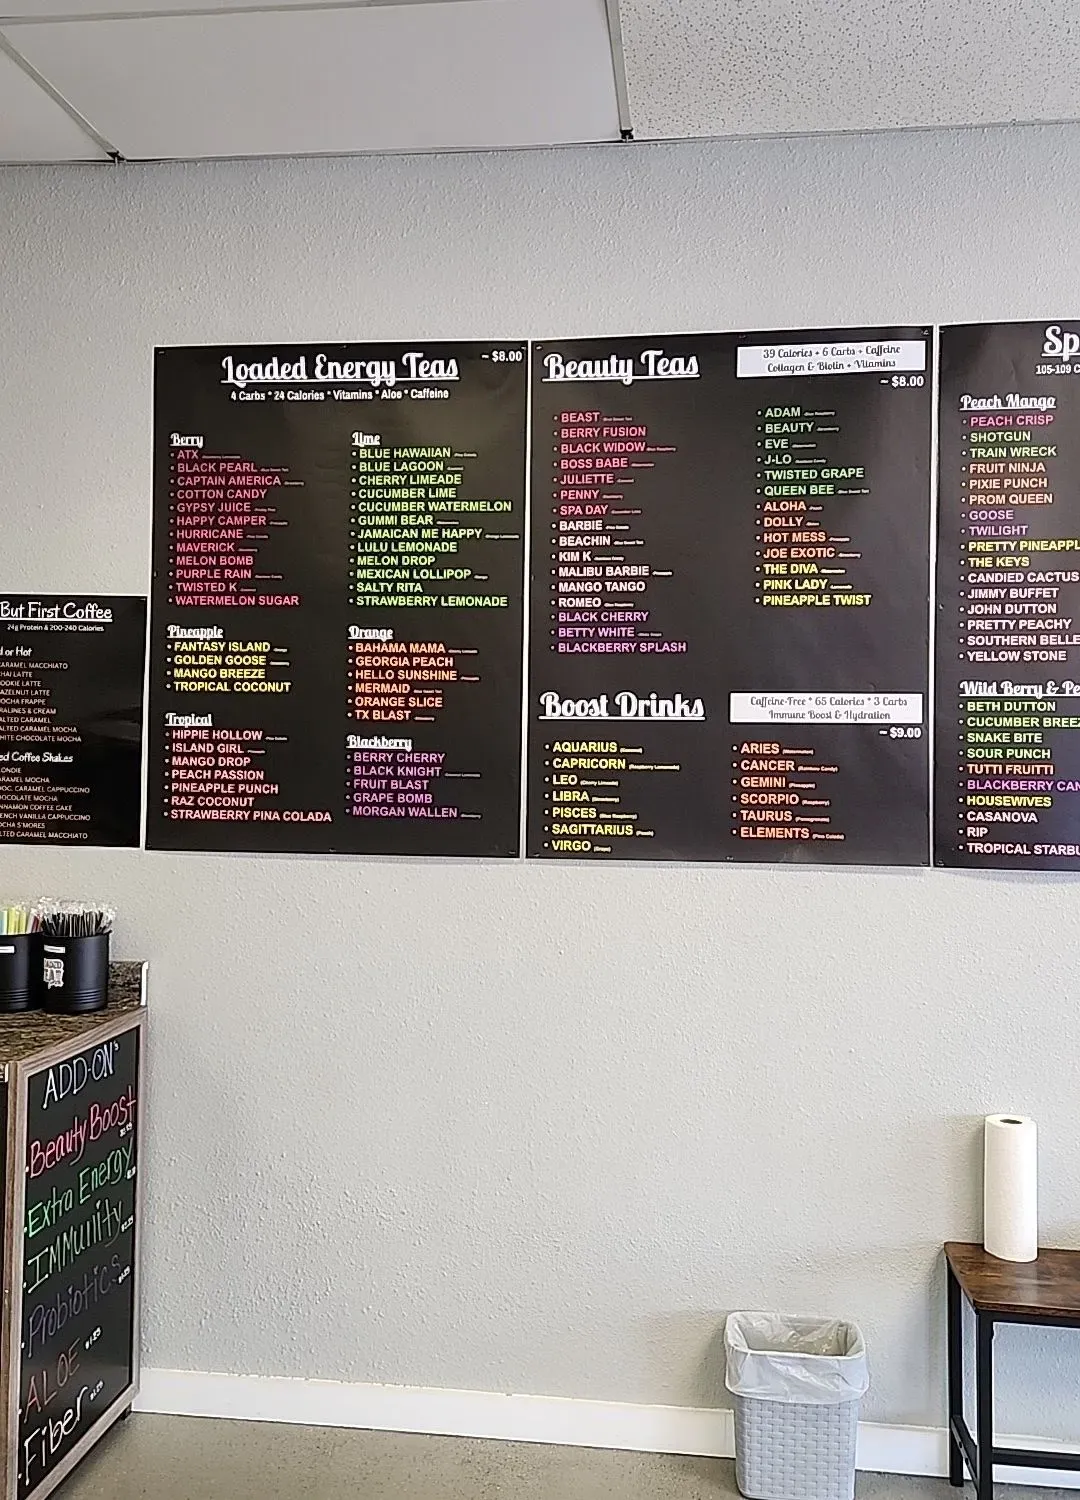 But First Coffee
24g Protein & 200-240 Calories
d or Hot
ARAMEL MACCHIATO
HAI LATTE
OOKIE LATTE
AZELNUT LATTE
OCHA FRAPPE
RALINES & CREAM
ALTED CARAMEL
ALTED CARAMEL MOCHA
HITE CHOCOLATE MOCHA
ed Coffee Shakes
LONDIE
ARAMEL MOCHA
HOC. CARAMEL CAPPUCCINO
HOCOLATE MOCHA
NNAMON COFFEE CAKE
ENCH VANILLA CAPPUCCINO
OCHA S'MORES
LTED CARAMEL MACCHIATO
Loaded Energy Teas
~ $8.00
4 Carbs * 24 Calories * Vitamins * Aloe * Caffeine
Berry
• ATX
• BLACK PEARL
• CAPTAIN AMERICA
• COTTON CANDY
• GYPSY JUICE
• HAPPY CAMPER
• HURRICANE
• MAVERICK
• MELON BOMB
• PURPLE RAIN
• TWISTED K
• WATERMELON SUGAR
Pineapple
• FANTASY ISLAND
• GOLDEN GOOSE
• MANGO BREEZE
• TROPICAL COCONUT
Tropical
• HIPPIE HOLLOW
• ISLAND GIRL
• MANGO DROP
• PEACH PASSION
• PINEAPPLE PUNCH
• RAZ COCONUT
• STRAWBERRY PINA COLADA
Lime
• BLUE HAWAIIAN
• BLUE LAGOON
• CHERRY LIMEADE
• CUCUMBER LIME
• CUCUMBER WATERMELON
• GUMMI BEAR
• JAMAICAN ME HAPPY
• LULU LEMONADE
• MELON DROP
• MEXICAN LOLLIPOP
• SALTY RITA
• STRAWBERRY LEMONADE
Orange
• BAHAMA MAMA
• GEORGIA PEACH
• HELLO SUNSHINE
• MERMAID
• ORANGE SLICE
• TX BLAST
Blackberry
• BERRY CHERRY
• BLACK KNIGHT
• FRUIT BLAST
• GRAPE BOMB
• MORGAN WALLEN
Beauty Teas
39 Calories + 6 Carbs + Caffeine
Collagen & Biotin + Vitamins
~ $8.00
• BEAST
• BERRY FUSION
• BLACK WIDOW
• BOSS BABE
• JULIETTE
• PENNY
• SPA DAY
• BARBIE
• BEACHIN
• KIM K
• MALIBU BARBIE
• MANGO TANGO
• ROMEO
• BLACK CHERRY
• BETTY WHITE
• BLACKBERRY SPLASH
• ADAM
• BEAUTY
• EVE
• J-LO
• TWISTED GRAPE
• QUEEN BEE
• ALOHA
• DOLLY
• HOT MESS
• JOE EXOTIC
• THE DIVA
• PINK LADY
• PINEAPPLE TWIST
Boost Drinks
Caffeine-Free * 65 Calories * 3 Carbs
Immune Boost & Hydration
~ $9.00
• AQUARIUS
• CAPRICORN (Raspberry Lemonade)
• LEO (Cherry Limeade)
• LIBRA (Strawberry)
• PISCES (Blue Raspberry)
• SAGITTARIUS (Peach)
• VIRGO (Grape)
• ARIES (Watermelon)
• CANCER (Rainbow Candy)
• GEMINI (Pineapple)
• SCORPIO (Raspberry)
• TAURUS (Pomegranate)
• ELEMENTS (Pina Colada)
Sp
105-109 C
Peach Mango
• PEACH CRISP
• SHOTGUN
• TRAIN WRECK
• FRUIT NINJA
• PIXIE PUNCH
• PROM QUEEN
• GOOSE
• TWILIGHT
• PRETTY PINEAPPL
• THE KEYS
• CANDIED CACTUS
• JIMMY BUFFET
• JOHN DUTTON
• PRETTY PEACHY
• SOUTHERN BELLE
• YELLOW STONE
Wild Berry & Pe
• BETH DUTTON
• CUCUMBER BREEZ
• SNAKE BITE
• SOUR PUNCH
• TUTTI FRUITTI
• BLACKBERRY CAN
• HOUSEWIVES
• CASANOVA
• RIP
• TROPICAL STARBU
ADD-ON's
• Beauty Boost
• Extra Energy
• IMMUNITY
• Probiotics
• ALOE $1.25
• Fiber $1.25